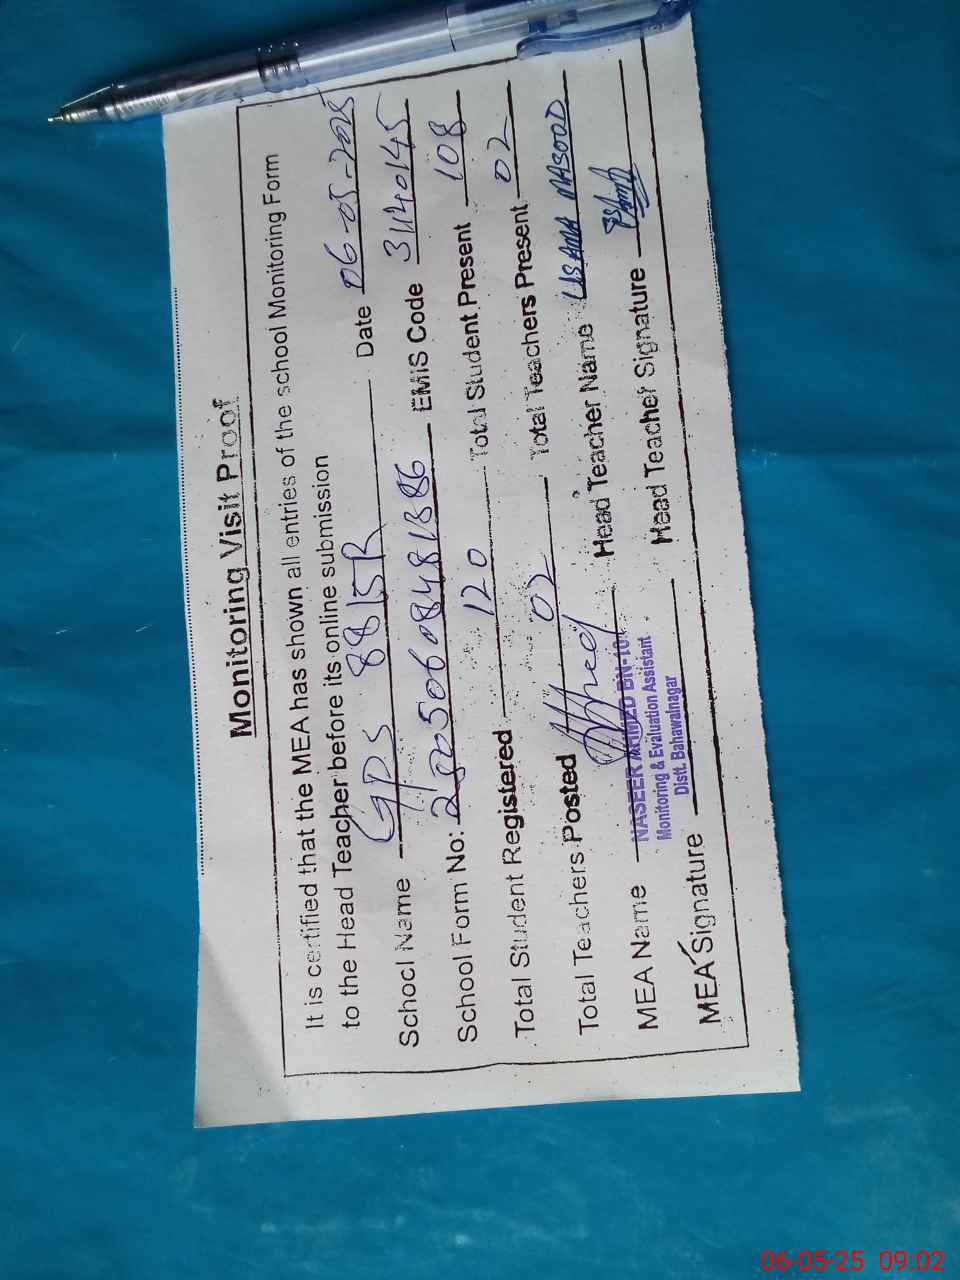 Monitoring Visit Proof
It is certified that the MEA has shown all entries of the school Monitoring Form
to the Head Teacher before its online submission
School Name GPS 88 15R Date 06-05-2025
School Form No: 25050608481386 EMIS Code 31140145
Total Student Registered 120 Total Student Present 108
Total Teachers Posted 02 Total Teachers Present 02
MEA Name NASEER AHMED BN-10 Head Teacher Name USAMA MASOOD
Monitoring & Evaluation Assistant
Distt. Bahawalnagar
MEA Signature Head Teacher Signature
06-05-25 09:02